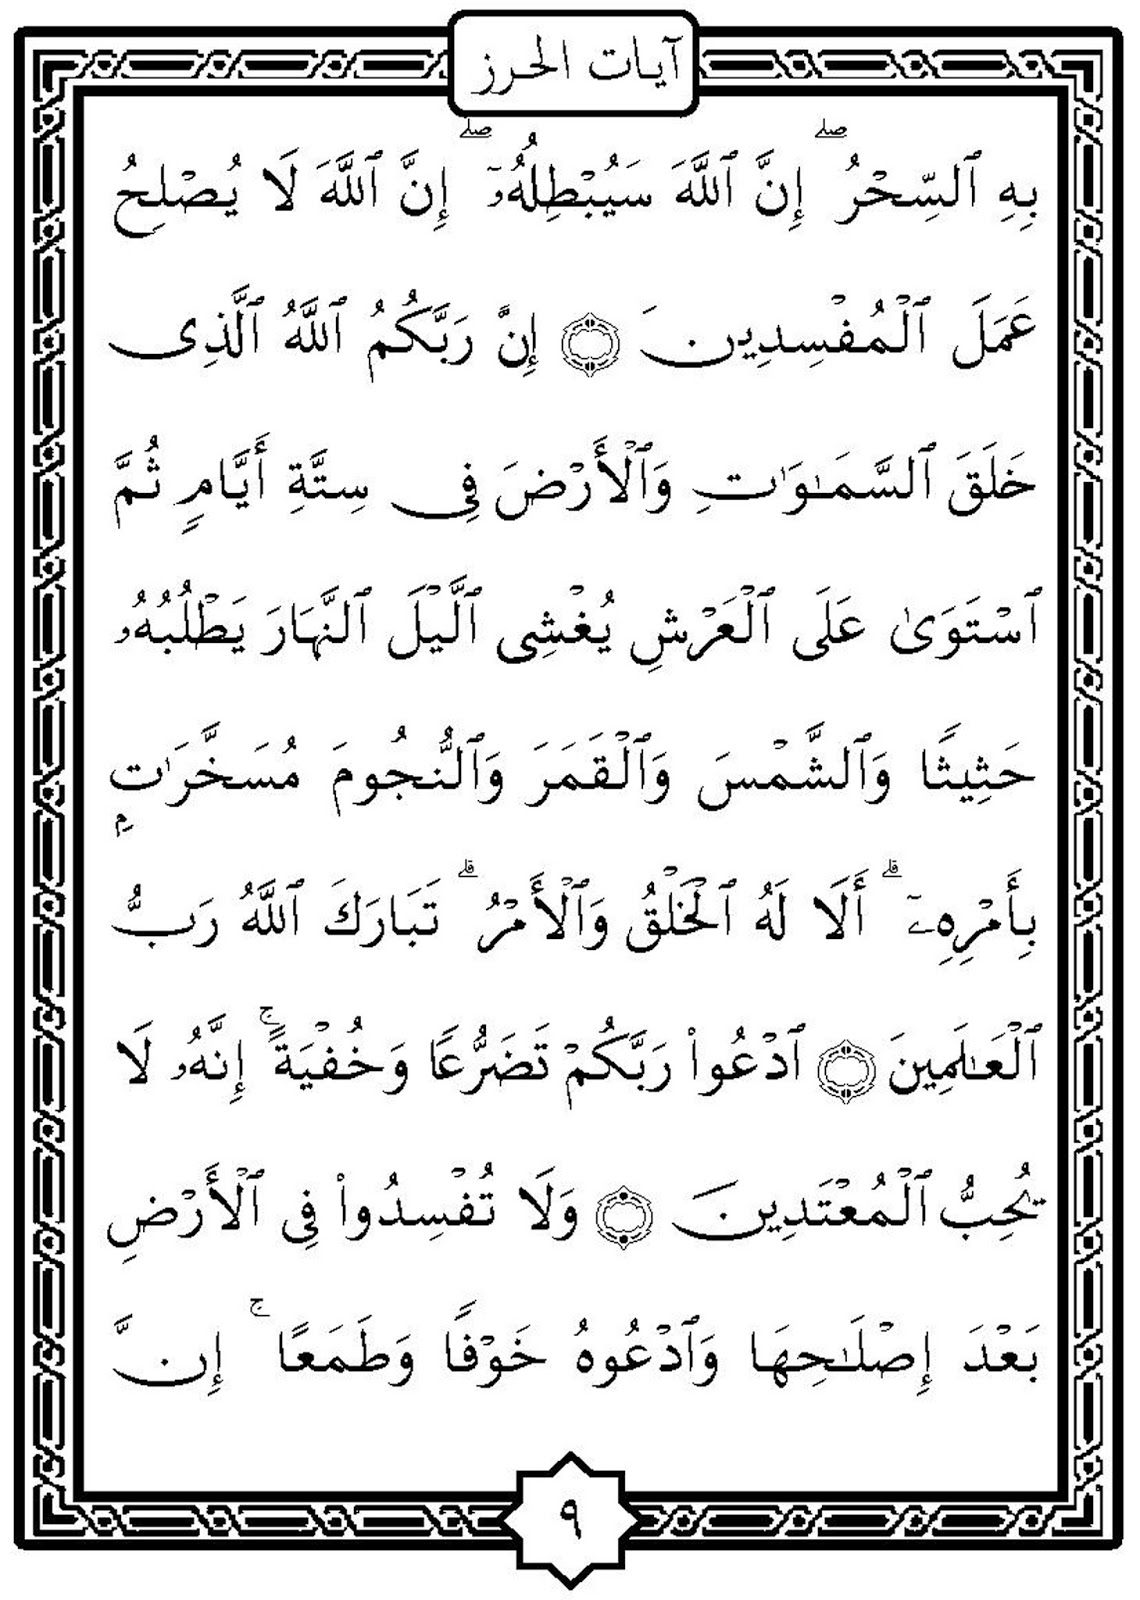 آيات الحرز
بِهِ ٱلسِّحْرُ ۖ إِنَّ ٱللَّهَ سَيُبْطِلُهُۥٓ ۖ إِنَّ ٱللَّهَ لَا يُصْلِحُ
عَمَلَ ٱلْمُفْسِدِينَ ۝ إِنَّ رَبَّكُمُ ٱللَّهُ ٱلَّذِى
خَلَقَ ٱلسَّمَـٰوَٰتِ وَٱلْأَرْضَ فِى سِتَّةِ أَيَّامٍ ثُمَّ
ٱسْتَوَىٰ عَلَى ٱلْعَرْشِ يُغْشِى ٱلَّيْلَ ٱلنَّهَارَ يَطْلُبُهُۥ
حَثِيثًا وَٱلشَّمْسَ وَٱلْقَمَرَ وَٱلنُّجُومَ مُسَخَّرَٰتٍۭ
بِأَمْرِهِۦٓ ۗ أَلَا لَهُ ٱلْخَلْقُ وَٱلْأَمْرُ ۗ تَبَارَكَ ٱللَّهُ رَبُّ
ٱلْعَـٰلَمِينَ ۝ ٱدْعُوا۟ رَبَّكُمْ تَضَرُّعًا وَخُفْيَةً ۚ إِنَّهُۥ لَا
يُحِبُّ ٱلْمُعْتَدِينَ ۝ وَلَا تُفْسِدُوا۟ فِى ٱلْأَرْضِ
بَعْدَ إِصْلَـٰحِهَا وَٱدْعُوهُ خَوْفًا وَطَمَعًا ۚ إِنَّ
٩